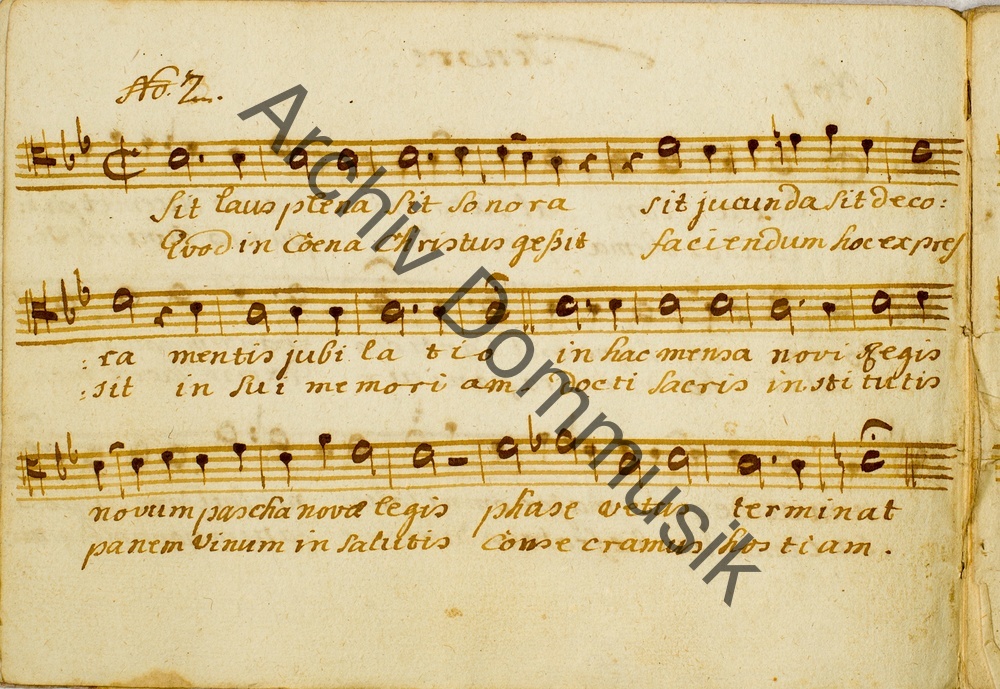 No. 2.
Sit laus plena sit sonora sit jucunda sit deco:
Quod in Coena Christus geßit faciendum hoc expres
:ra mentis jubi la tio in hac mensa novi Regis
:sit in sui memori am docti sacris insti tutis
novum pascha novæ legis phase vetus terminat
panem vinum in salutis conse cramus hos tiam.
Archiv Dommusik